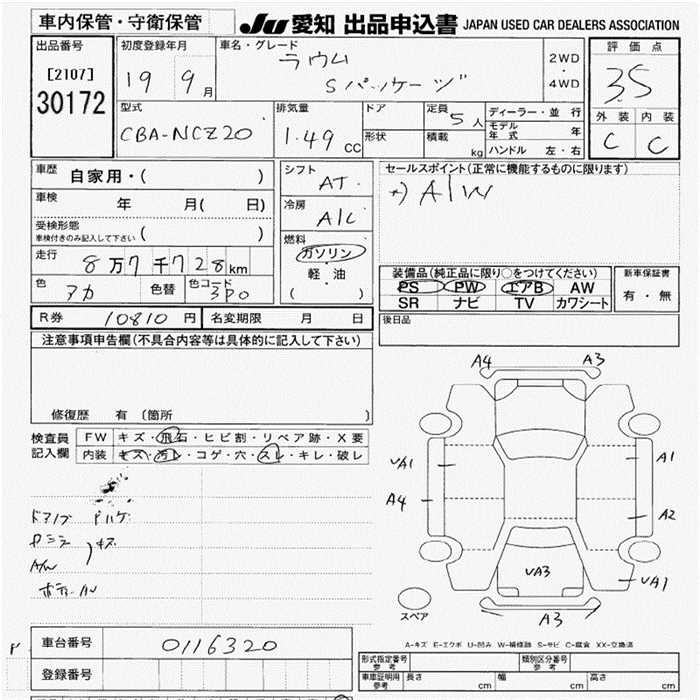 車内保管・守衛保管
JU 愛知 出品申込書 JAPAN USED CAR DEALERS ASSOCIATION
出品番号
[2107]
30172
初度登録年月
19 9月
車名・グレード
ラウム
Sパッケージ
2WD
・
4WD
評価点
3.5
外装 内装
C C
型式
CBA-NCZ20
排気量
1.49 CC
ドア
形状
定員
5人
積載
kg
ディーラー・並行
モデル年式 年
ハンドル 左・右
車歴
自家用・( )
車検
年 月( 日)
受検形態
車検付きのみ記入して下さい ( )
走行
8万7千728km
色
アカ
色替
色コード
3P0
シフト
AT
冷房
A/C
燃料
ガソリン
・
軽・油
( )
セールスポイント(正常に機能するものに限ります)
A/W
装備品(純正品に限り○をつけてください)
PS PW エアB AW
SR ナビ TV カワシート
新車保証書
有・無
R券 10810円 名変期限 月 日
後日品
注意事項申告欄(不具合内容等は具体的に記入して下さい)
修復歴 有 〔箇所 〕
検査員
記入欄
FW キズ・飛石・ヒビ割・リペア跡・X要
内装 キズ・汚レ・コゲ・穴・スレ・キレ・破レ
A4 A3
UA1 A1
A4 A2
UA3 UA1
A3
スペア
A-キズ E-エクボ U-凹み W-補修跡 S-サビ C-腐食 XX-交換済
車台番号 0116320
登録番号
型式指定番号
参考
類別区分番号
参考
車庫証明用
参考
長さ cm 幅 cm 高さ cm